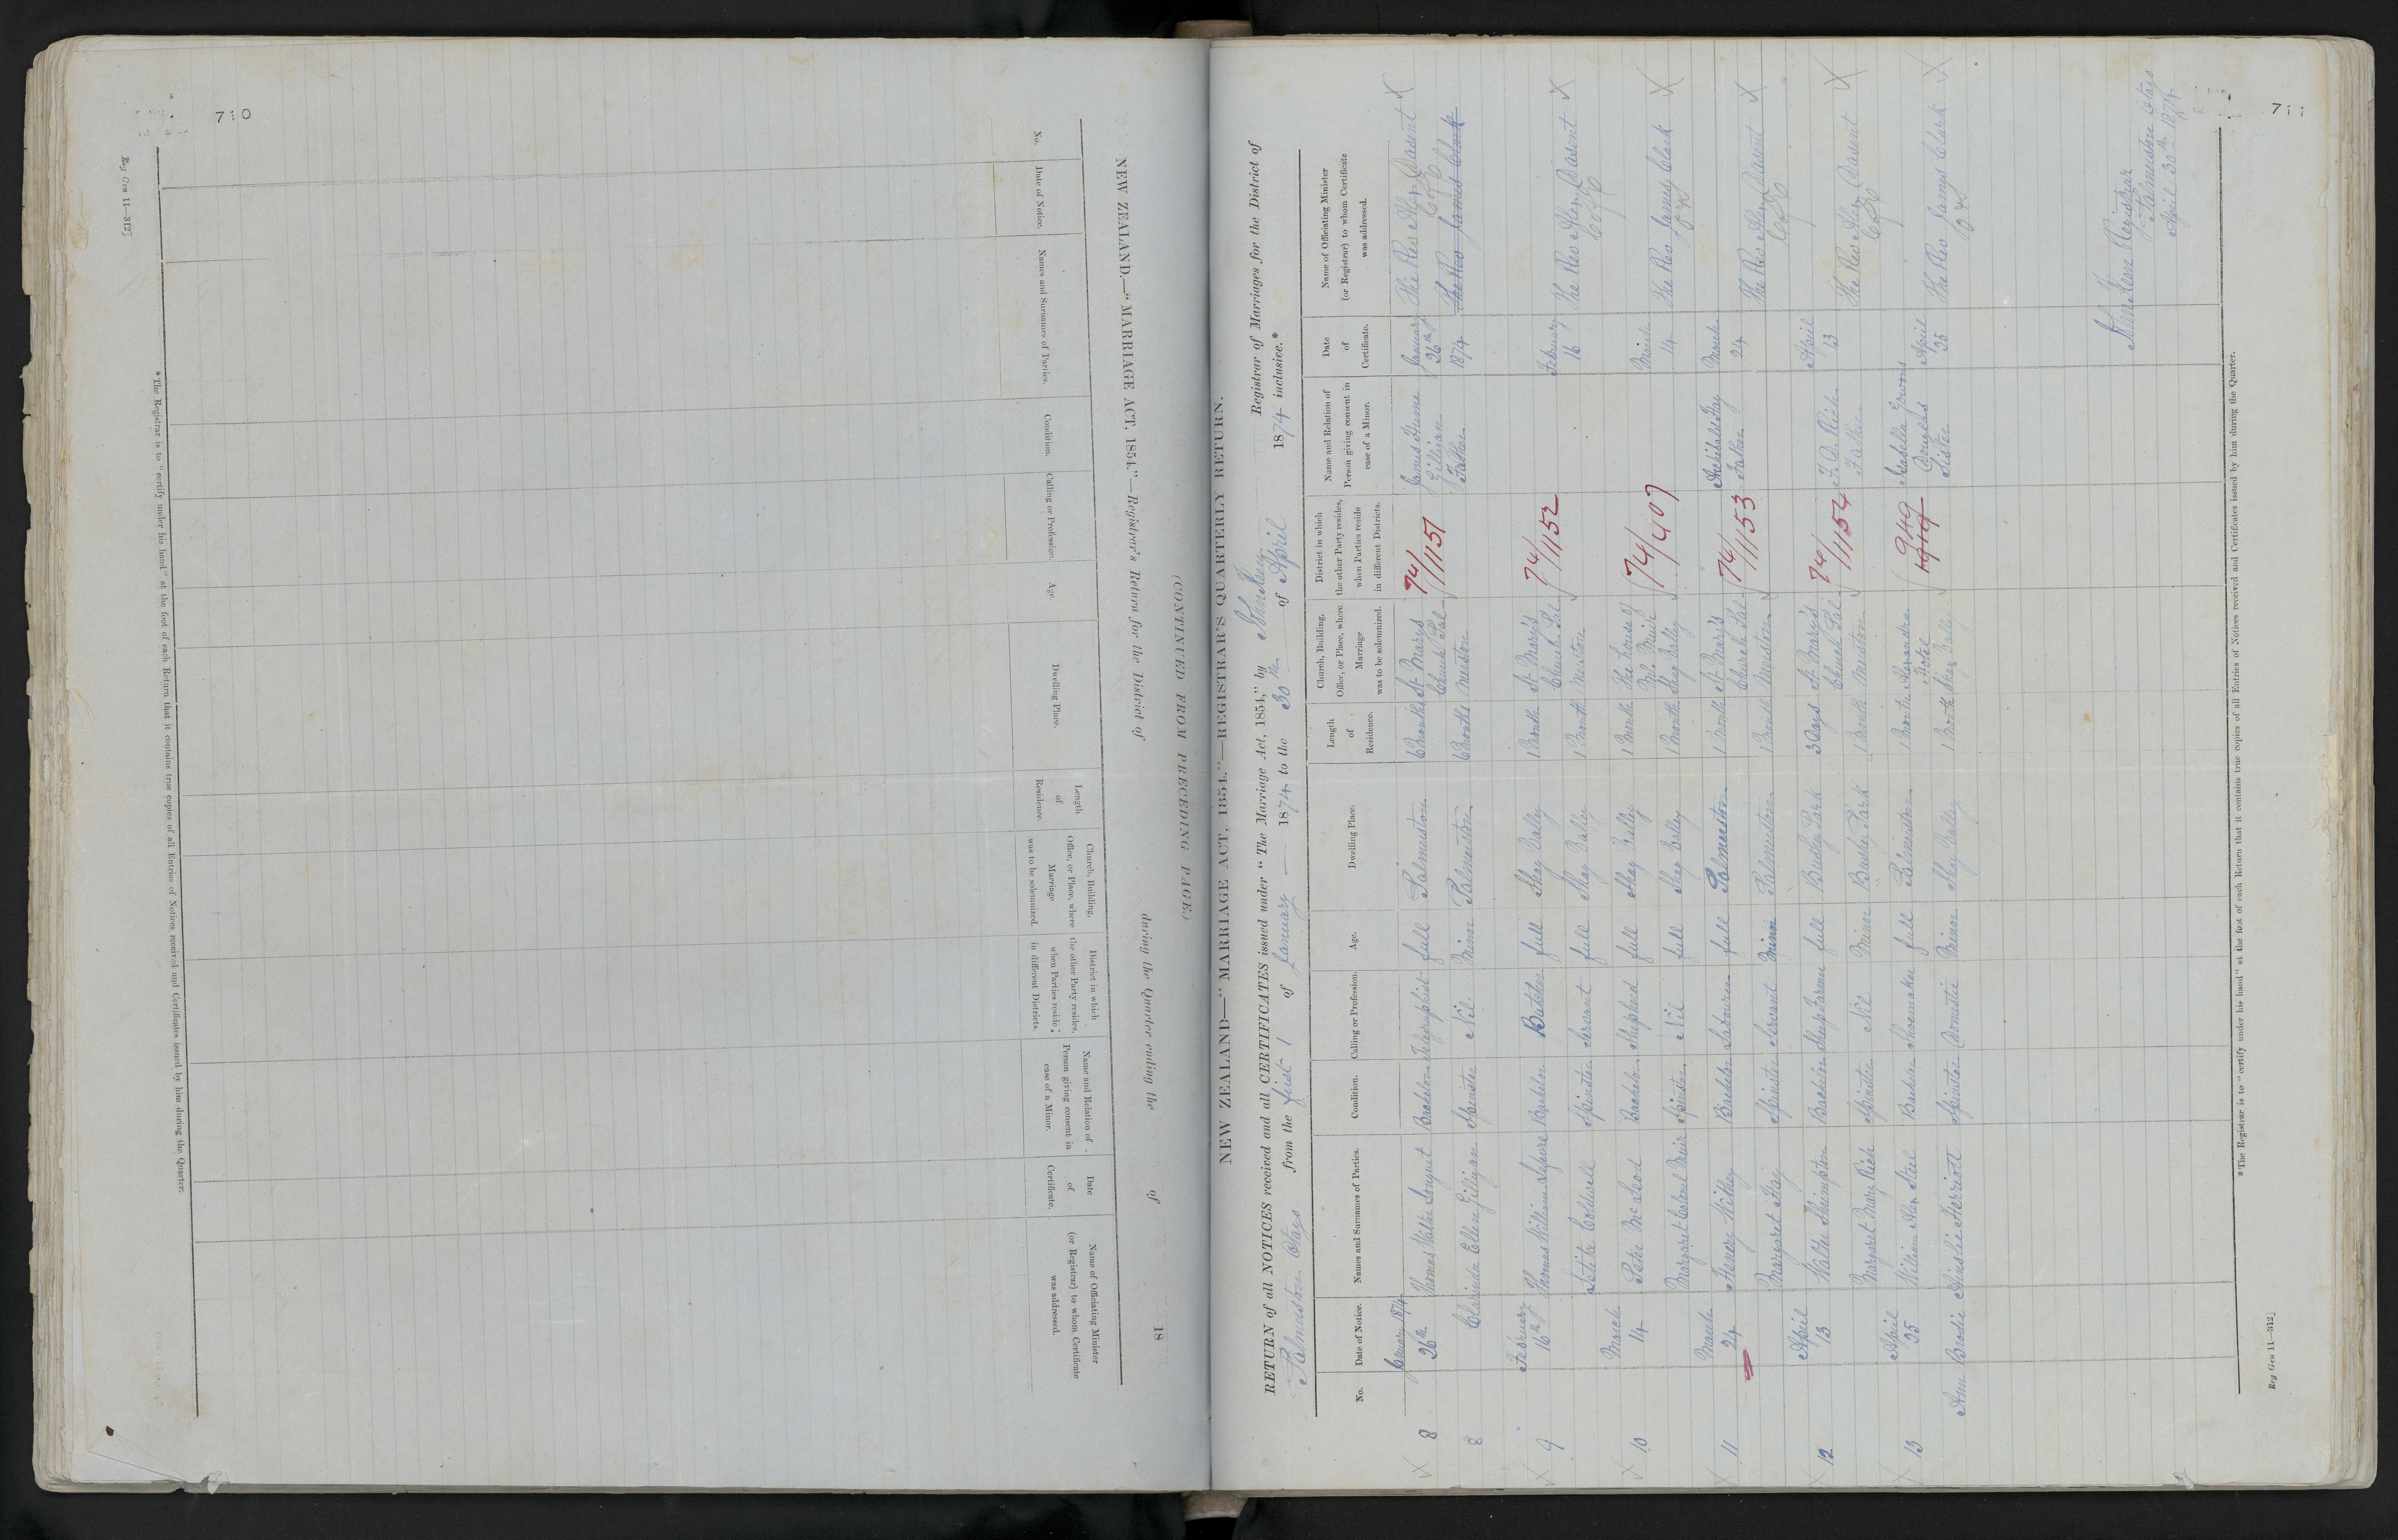 710
Reg Gen 11—312]
NEW ZEALAND.—"MARRIAGE ACT, 1854."—Registrar's Return for the District of during the Quarter ending the of 18
(CONTINUED FROM PRECEDING PAGE.)
No.
Date of Notice.
Names and Surnames of Parties.
Condition.
Calling or Profession.
Age.
Dwelling Place.
Length of Residence.
Church, Building, Office, or Place, where Marriage was to be solemnized.
District in which the other Party resides, when Parties reside in different Districts.
Name and Relation of Person giving consent in case of a Minor.
Date of Certificate.
Name of Officiating Minister (or Registrar) to whom Certificate was addressed.
* The Registrar is to "certify under his hand" at the foot of each Return that it contains true copies of all Entries of Notices received and Certificates issued by him during the Quarter.
711
NEW ZEALAND—"MARRIAGE ACT, 1854."—REGISTRAR'S QUARTERLY RETURN.
RETURN of all NOTICES received and all CERTIFICATES issued under "The Marriage Act, 1854," by Registrar of Marriages for the District of
Palmerston Otago from the first 1 of January 1874 to the 30th of April 1874 inclusive.*
No.
Date of Notice.
Names and Surnames of Parties.
Condition.
Calling or Profession.
Age.
Dwelling Place.
Length of Residence.
Church, Building, Office, or Place, where Marriage was to be solemnized.
District in which the other Party resides, when Parties reside in different Districts.
Name and Relation of Person giving consent in case of a Minor.
Date of Certificate.
Name of Officiating Minister (or Registrar) to whom Certificate was addressed.
8 January 1874 26th Thomas Walter Bachelor Telegraphist full Palmerston 6 Months St Marys Church Palmerston 74/1151 James Hume Gilligan Father January 26th 1874 The Rev Alex Dasent X
8 Clarinda Ellen Gilligan Spinster Nil Minor Palmerston 6 Months The Rev James Clark
9 February 16th Thomas William Bachelor Butcher full Shag Valley 1 Month St Mary's Church Palmerston 74/1152 February 16 The Rev Alex Dasent X
Spinster Servant full Shag Valley 1 Month
10 March 14 Peter McLeod Bachelor Shepherd full Shag Valley 1 Month The House of Mr Muir Shag Valley 74/407 March 14 The Rev James Clark X
Margaret Muir Spinster Nil full Shag Valley 1 Month
11 March 24 Henery Bachelor Labourer full Palmerston 1 Month St Mary's Church Palmerston 74/1153 Archibald Hay Father March 24 The Rev Alex Dasent X
Margaret Hay Spinster Servant Minor Palmerston 1 Month
12 April 13 Walter Shrimpton Bachelor Sheep Farmer full Bushey Park 3 Days St Mary's Church Palmerston 74/1154 F. D. Rich Father April 13 The Rev Alex Dasent X
Margaret Mary Rich Spinster Nil Minor Bushey Park 1 Month
13 April 25 William Alex Steel Bachelor Shoemaker full Palmerston 1 Month Hotel Shag Valley 949 Isabella Douglas Sister April 25 The Rev James Clark X
Ann Brodie Ainslie Herriott Spinster Domestic Minor Shag Valley 1 Month
Registrar
Palmerston Otago
April 30th 1874
* The Registrar is to "certify under his hand" at the foot of each Return that it contains true copies of all Entries of Notices received and Certificates issued by him during the Quarter.
Reg Gen 11—312]